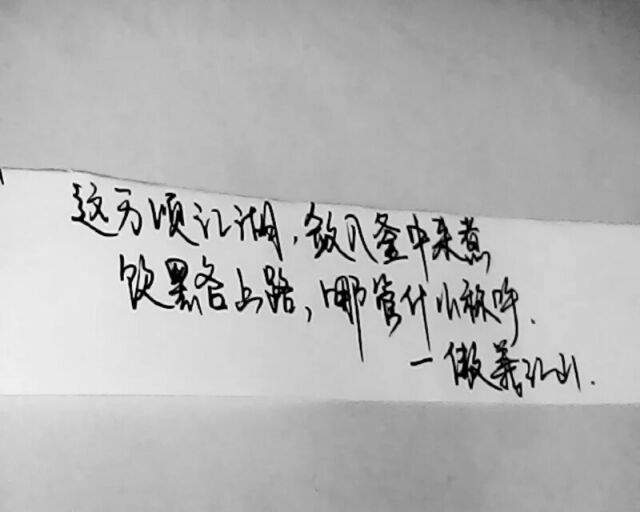 这万顷江湖，放入釜中来煮
饮罢各上路，哪管什么称呼.
一傲义江山.